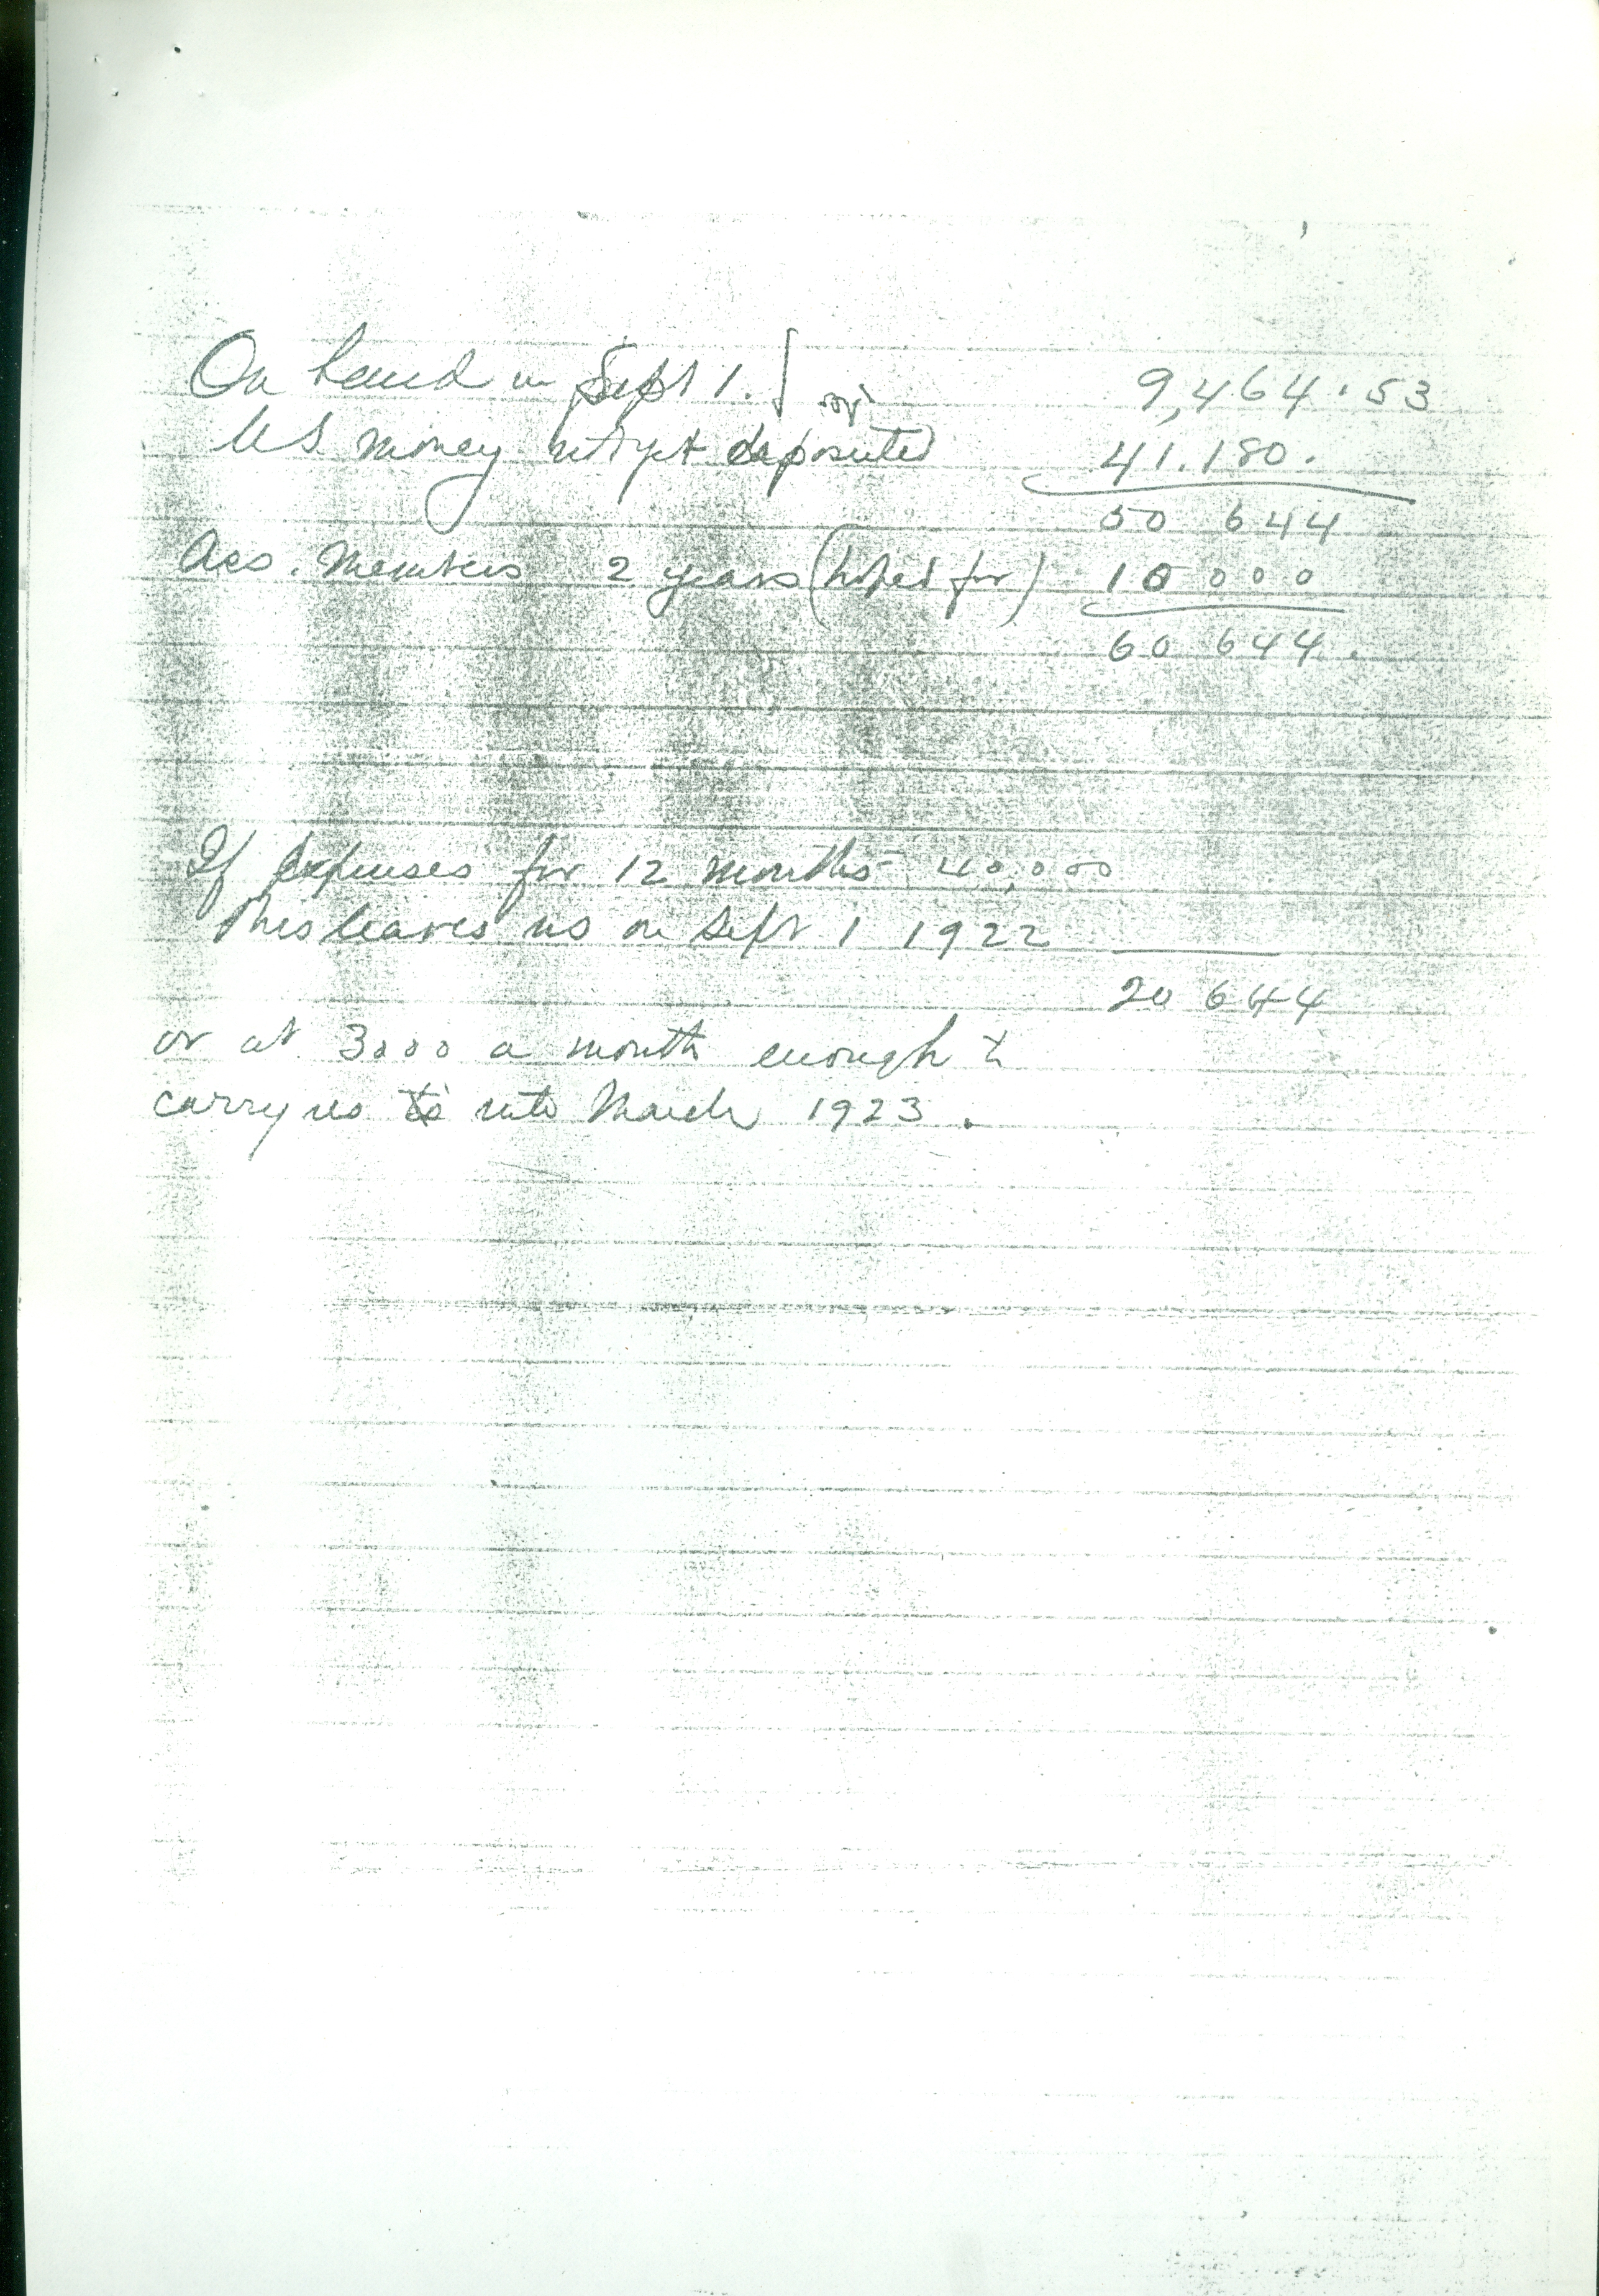 On hand on Sept 1. 9,464.53
U.S. money not yet deposited 41.180.
50 644
Ass. Members 2 years (hoped for) 10 000
60 644.
If expenses for 12 months 40,000
This leaves us on Sept 1 1922
20 644
or at 3000 a month enough to
carry us to into March 1923.